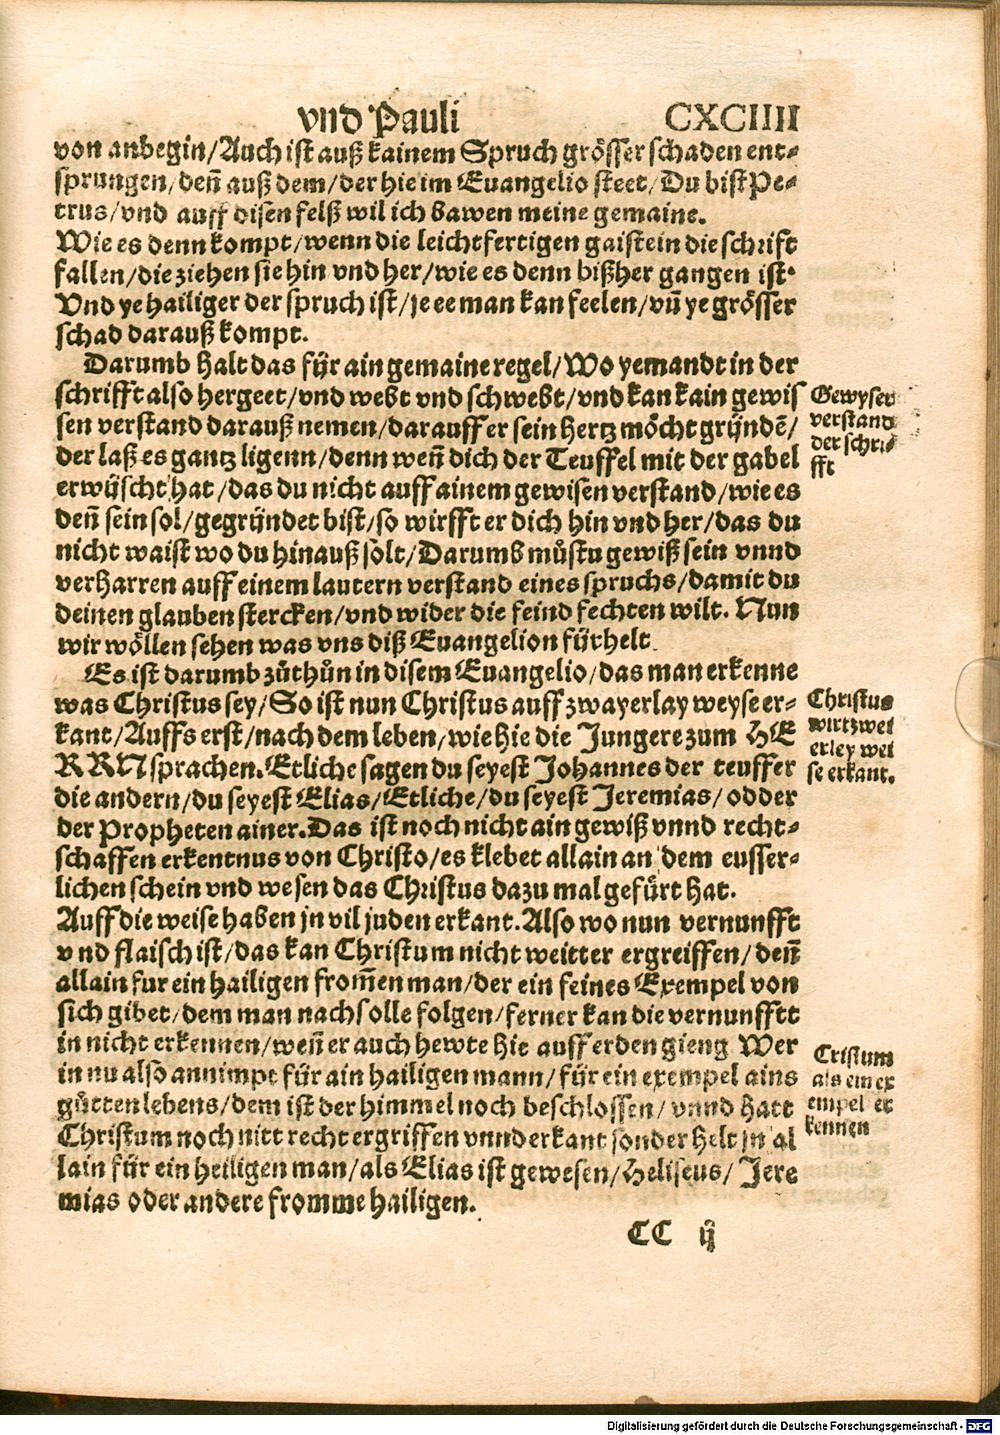 vnd Pauli CXCIIII
von anbegin/Auch ist auß kainem Spruch grösser schaden ent-
sprungen/deñ auß dem/der hie im Euangelio steet/Du bist Pe-
trus/vnd auff disen felß wil ich bawen meine gemaine.
Wie es denn kompt/wenn die leichtfertigen gaist ein die schrift
fallen/die ziehen sie hin vnd her/wie es denn bißher gangen ist.
Vnd ye hailiger der spruch ist/je ee man kan feelen/vñ ye grösser
schad darauß kompt.
Darumb halt das für ain gemaine regel/Wo yemandt in der
schrifft also hergeet/vnd webt vnd schwebt/vnd kan kain gewis
sen verstand darauß nemen/darauff er sein hertz möcht gründẽ/
der laß es gantz ligenn/denn weñ dich der Teuffel mit der gabel
erwüscht hat/das du nicht auff ainem gewisen verstand/wie es
deñ sein sol/gegründet bist/so wirfft er dich hin vnd her/das du
nicht waist wo du hinauß solt/Darumb můstu gewiß sein vnnd
verharren auff einem lautern verstand eines spruchs/damit du
deinen glauben stercken/vnd wider die feind fechten wilt. Nun
wir wöllen sehen was vns diß Euangelion fürhelt.
Es ist darumb zůthůn in disem Euangelio/das man erkenne
was Christus sey/So ist nun Christus auff zwayerlay weyse er-
kant/Auffs erst/nach dem leben/wie hie die Jungere zum HE
RRN sprachen. Etliche sagen du seyest Johannes der teuffer
die andern/du seyest Elias/Etliche/du seyest Jeremias/odder
der Propheten ainer. Das ist noch nicht ain gewiß vnnd recht-
schaffen erkentnus von Christo/es klebet allain an dem eusser-
lichen schein vnd wesen das Christus dazu mal gefürt hat.
Auff die weise haben jn vil juden erkant. Also wo nun vernunfft
vnd flaisch ist/das kan Christum nicht weitter ergreiffen/deñ
allain fur ein hailigen from̃en man/der ein feines Exempel von
sich gibet/dem man nach solle folgen/ferner kan die vernunfftt
in nicht erkennen/weñ er auch hewte hie auff erden gieng Wer
in nu also annimpt für ain hailigen mann/für ein exempel ains
gůtten lebens/dem ist der himmel noch beschlossen/vnnd hatt
Christum noch nitt recht ergriffen vnnd erkant sonder helt jn al
lain für ein heiligen man/als Elias ist gewesen/Heliseus/Jere
mias oder andere fromme hailigen.
CC ij
Gewyser
verstand
der schri-
fft
Christus
wirt zwei
erley wei
se erkant.
Cristum
als ein ex
empel er
kennen
Digitalisierung gefördert durch die Deutsche Forschungsgemeinschaft - DFG